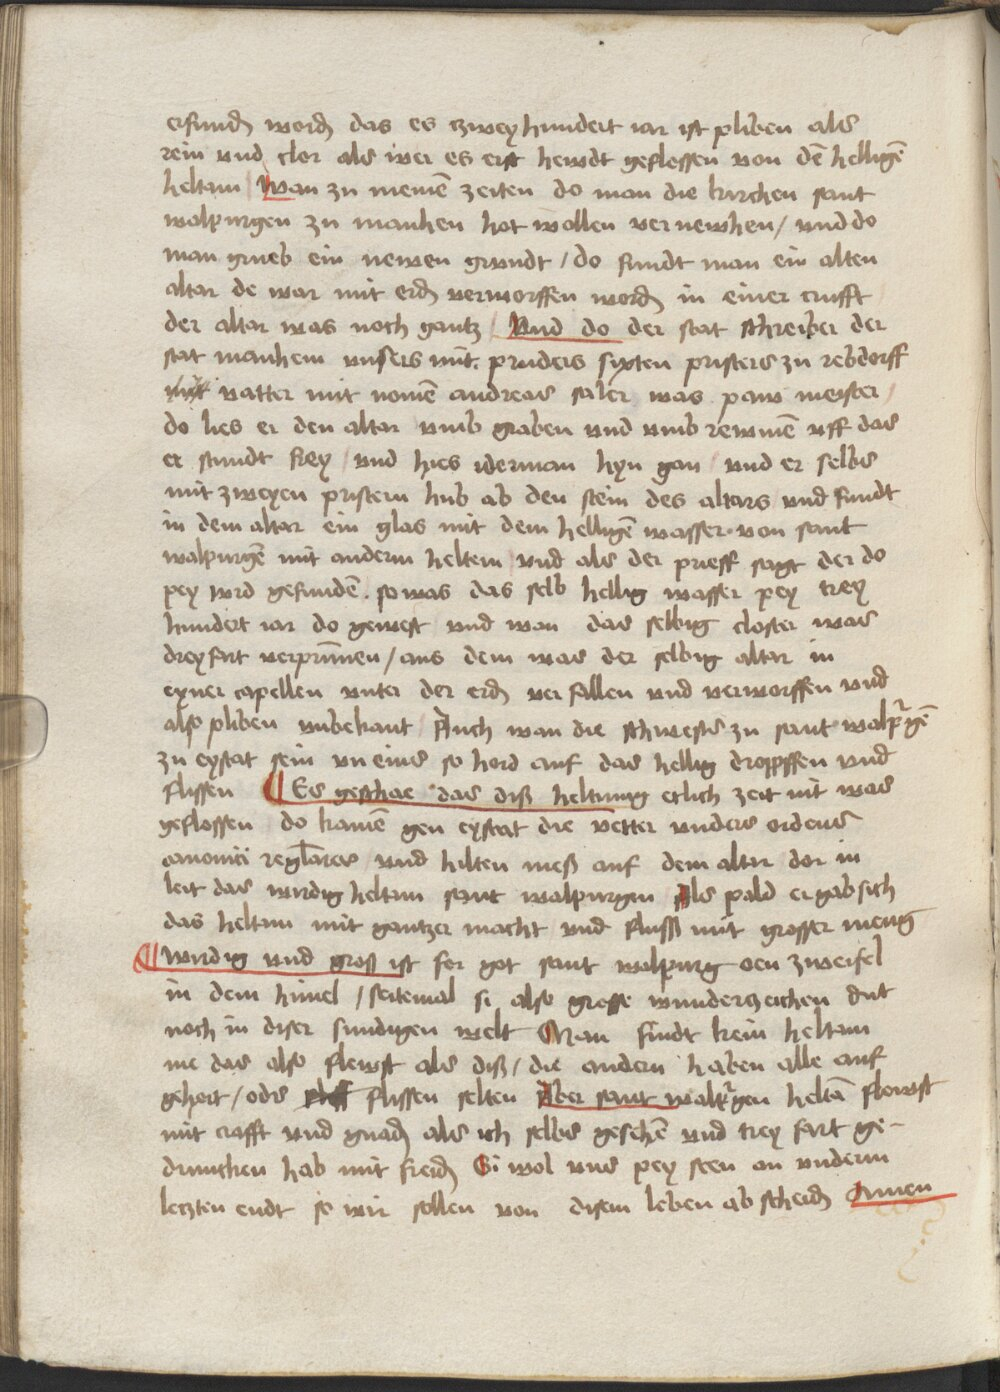 erfundn wordn das es zweyhundert iar ist pliben als
rein und clor als wer es erst hewdt geflossen von de helligen
heltam Wan zu meinen zeiten do man die kirchen sant
walpurgen zu manhen hot wollen vernewhen / und do
man grueb ein newen grundt / do fundt man ein alten
altar de war mit erdn verworffen wordn in einer crufft
der altar was noch gantz Und do der stat schreiber der
stat manhem unsers mit pruders sixten pristers zu rebdorff
vatter mit nomen andreas saler was paw meister /
do lies er den altar umb graben und umb rewmen uff das
er stundt frey / und hies iderman hyn gan / und er selbs
mit zweyen pristern hub ab den stein des altars und fundt
in dem altar ein glas mit dem helligen wasser von sant
walpurgen mit anderm heltem und als der prieff sagt der do
pey wrd gefunden . so was das selb hellig wasser pey trey
hundert iar do gewest und wan das selbig closter was
dreyfart verprunnen / aus dem was der selbig altar in
eyner capellen unter der erdn ver fallen und verworffen und
also pliben unbekant Auch wan die schwester zu sant walpurgen
zu eystat sein un eins so hord auf das hellig dropffen und
flissen ¶ Es geschae das diß heltumg etlich zeit nit was
geflossen do kamen gen eystat die vetter unders ordens
canonici reglares und hilten meß auf dem altar dor in
leit das wirdig heltam sant walpurgen Als pald ergab sich
das heltam mit gantzer macht und fluß mit grosser meng
¶ Wirdig und groß ist for got sant walpurg oen zweifel
in dem himel / seitemal si also grosse wunderzeichen dut
noch in diser sundigen welt Man findt kein heltam
me das also flewst als diß / die andern haben alle auf
gehort / oder flissen selten Aber sant walpurgen heltam flewst
mit crafft und gnadn als ich selbs gesehen und trey fart ge-
druncken hab mit freidn Si wol uns pey steen an underm
letzten endt so wir sollen von disem leben ab scheidn Amen